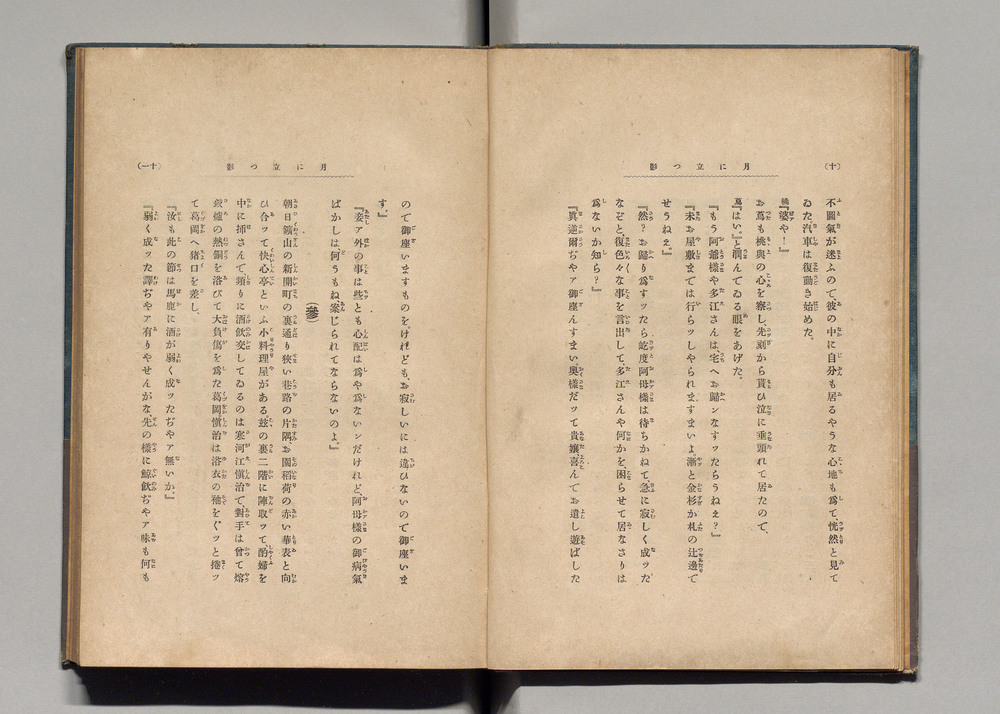 （十）
月に立つ影
不圖氣が迷ふので、彼の中に自分も居るやうな心地も爲て、恍然と見て
ゐた汽車は復動き始めた。
桃『婆や！』
お蔦も桃與の心を察し、先刻から貰ひ泣に垂頭れて居たので、
蔦『はい。』と潤んでゐる眼をあげた。
『もう阿爺樣や多江さんは、宅へお歸ンなすッたらうねえ？』
『未お屋敷までは行らッしやられますまいよ、漸と金杉か札の辻邊で
せうねぇ。』
『然？お歸り爲すッたら屹度阿母樣は待ちかねて、急に寂しく成ッた
などと、復色々な事を言出して、多江さんや何かを、困らせて居なさりは
爲ないか知ら？』
『眞逆爾ぢやア御座んすまい、奧樣だッて貴孃、喜んでお遣し遊ばした
（十一）
月に立つ影
ので御座いますものを、けれども、お寂しいには違ひないので御座いま
す。』
『妾ア外の事は些とも心配は爲や爲ないンだけれど、阿母樣の御病氣
ばかしは、何うもね案じられてならないのよ。』
（參）
朝日鑛山の新開町の裏通り狹い巷路の片隅、お圍稻荷の赤い華表と向
ひ合ッて快心亭といふ小料理屋がある、玆の裏二階に陣取ッて酌婦を
中に挿さんで、頻りに酒飮交してゐるのは寒河江愼治で、對手は曾て熔
鑛爐の熱銅を浴びて大負傷を爲た葛岡愼治は浴衣の袖をぐッと捲ッ
て葛岡へ猪口を差し、
『汝も此の節は馬鹿に酒が弱く成ッたぢやア無いか。』
『弱く成ッた譯ぢやア有りやせんがな、先の樣に鯨飮ぢやア味も何も